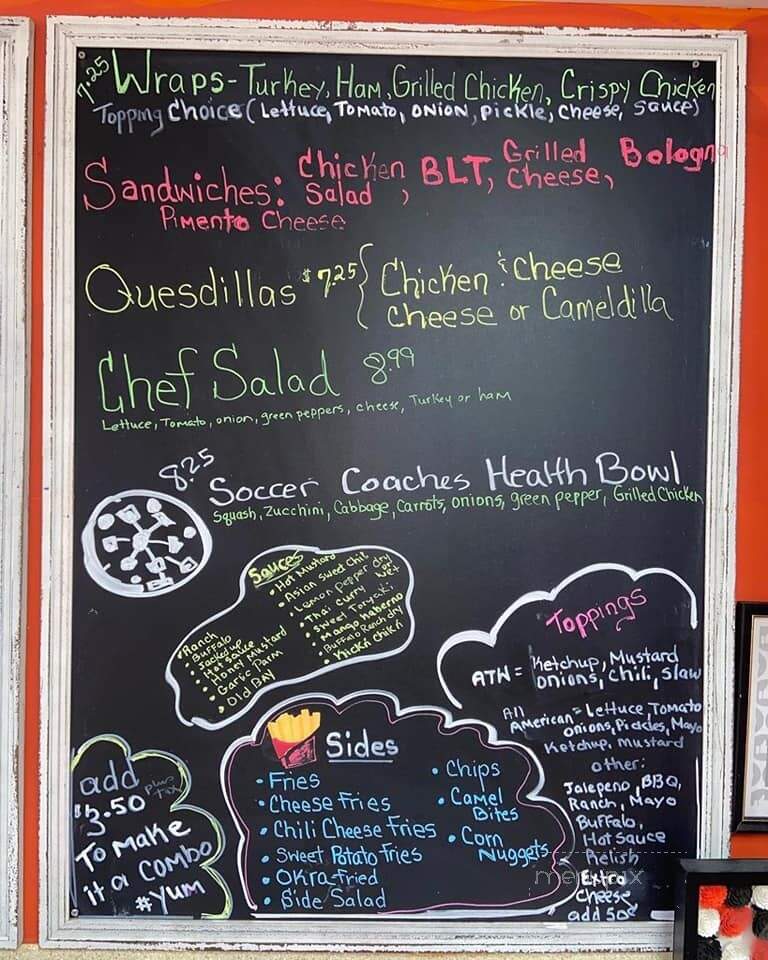 7.25 Wraps-Turkey, Ham, Grilled Chicken, Crispy Chicken
Topping Choice (Lettuce, Tomato, onion, pickle, cheese, sauce)
Sandwiches: Chicken Salad, BLT, Grilled Cheese, Bologna
Pimento Cheese
Quesdillas $7.25 { Chicken & Cheese
Cheese or Cameldilla
Chef Salad 8.99
Lettuce, Tomato, onion, green peppers, cheese, Turkey or ham
8.25 Soccer Coaches Health Bowl
Squash, Zucchini, Cabbage, Carrots, onions, green pepper, Grilled Chicken
Sauces
• Ranch
• Buffalo
• Jacked up
• Hot sauce
• Honey Mustard
• Garlic Parm
• Old Bay
• Hot Mustard
• Asian sweet Chili
• Lemon Pepper dry or wet
• Thai curry
• Sweet Teryaki
• Mango Habernо
• Buffalo Ranch dry
• Kickn chikn
Toppings
ATW = Ketchup, Mustard
onions, chili, slaw
All American = Lettuce, Tomato
onions, Pickles, Mayo
Ketchup, Mustard
other:
Jalepeno, BBQ,
Ranch, Mayo
Buffalo,
Hot Sauce
Relish
Extra
Cheese
add 50¢
Sides
• Fries
• Cheese Fries
• Chili Cheese Fries
• Sweet Potato Fries
• Okra-Fried
• Side Salad
• Chips
• Camel
Bites
• Corn
Nuggets
add
$3.50 plus tax
To Make
it a combo
#yum